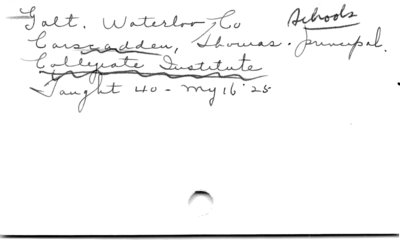 Galt. Waterloo Co Schools
Carscadden, Thomas. principal.
Collegiate Institute
Taught 40 - My 16 '25